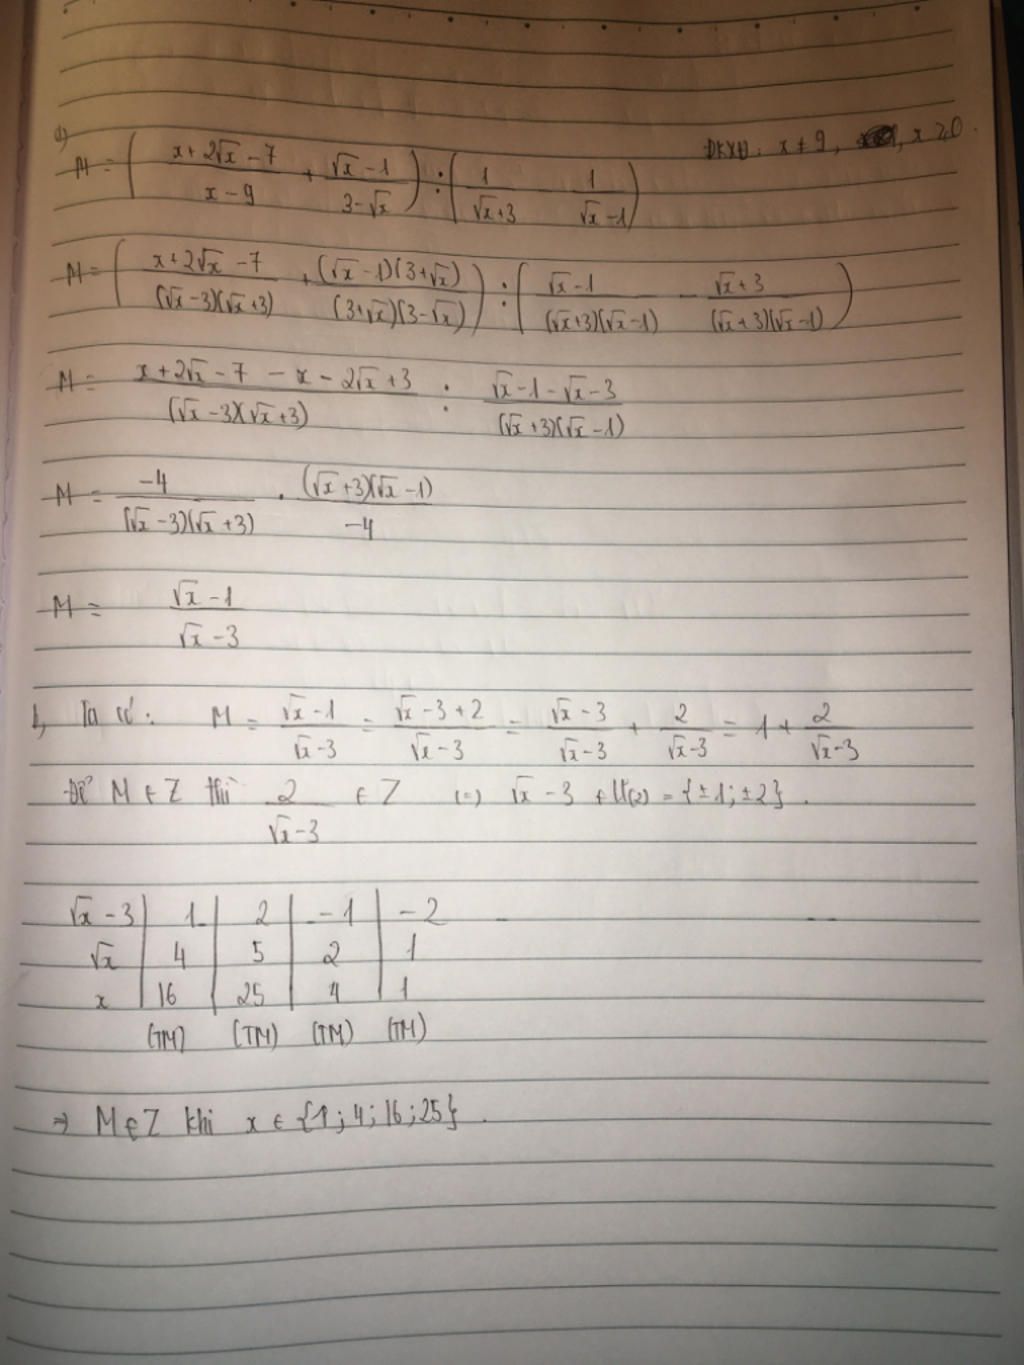 a)
M = ( (x + 2√x - 7)/(x - 9) + (√x - 1)/(3 - √x) ) : ( 1/(√x + 3) - 1/(√x - 1) ) ĐKXĐ: x ≠ 9, , x ≥ 0.
M = ( (x + 2√x - 7)/((√x - 3)(√x + 3)) + ((√x - 1)(3 + √x))/((3 + √x)(3 - √x)) ) : ( (√x - 1)/((√x + 3)(√x - 1)) - (√x + 3)/((√x + 3)(√x - 1)) )
M = (x + 2√x - 7 - x - 2√x + 3)/((√x - 3)(√x + 3)) : (√x - 1 - √x - 3)/((√x + 3)(√x - 1))
M = -4/((√x - 3)(√x + 3)) . ((√x + 3)(√x - 1))/-4
M = (√x - 1)/(√x - 3)
b, Ta có: M = (√x - 1)/(√x - 3) = (√x - 3 + 2)/(√x - 3) = (√x - 3)/(√x - 3) + 2/(√x - 3) = 1 + 2/(√x - 3)
Để M ∈ Z thì 2/(√x - 3) ∈ Z (=) √x - 3 ∈ Ư(2) = {±1; ±2}.
√x - 3 | 1 | 2 | -1 | -2
√x | 4 | 5 | 2 | 1
x | 16 | 25 | 4 | 1
(TM) (TM) (TM) (TM)
⇒ M ∈ Z khi x ∈ {1; 4; 16; 25}.